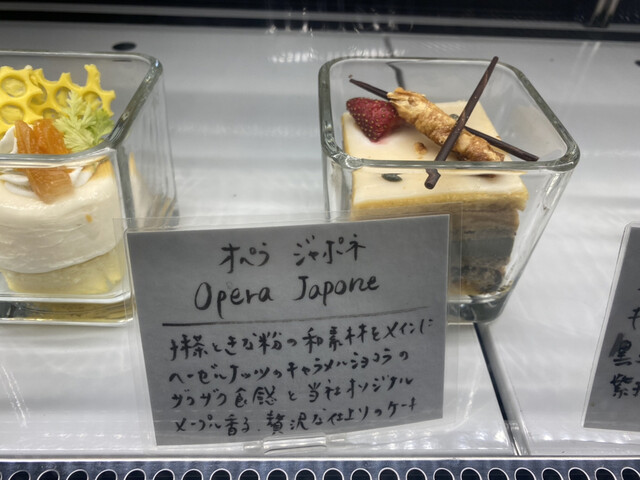 オペラ ジャポネ
Opera Japone
抹茶ときな粉の和素材をメインに
ヘーゼルナッツのキャラメルショコラの
ザクザク食感と当社オリジナル
メープル香る、贅沢な仕上りのケーキ
黒
紫